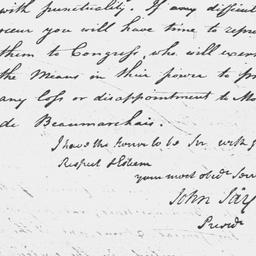 with punctuality. If any difficul
occur you will have time to repre
them to Congress, who will exert
the Means in their power to pre
any loss or disappointment to Mo
de Beaumarchais.
I have the honor to be Sir with g
Respect & Esteem
your most obedt Ser
John Jay
Preside